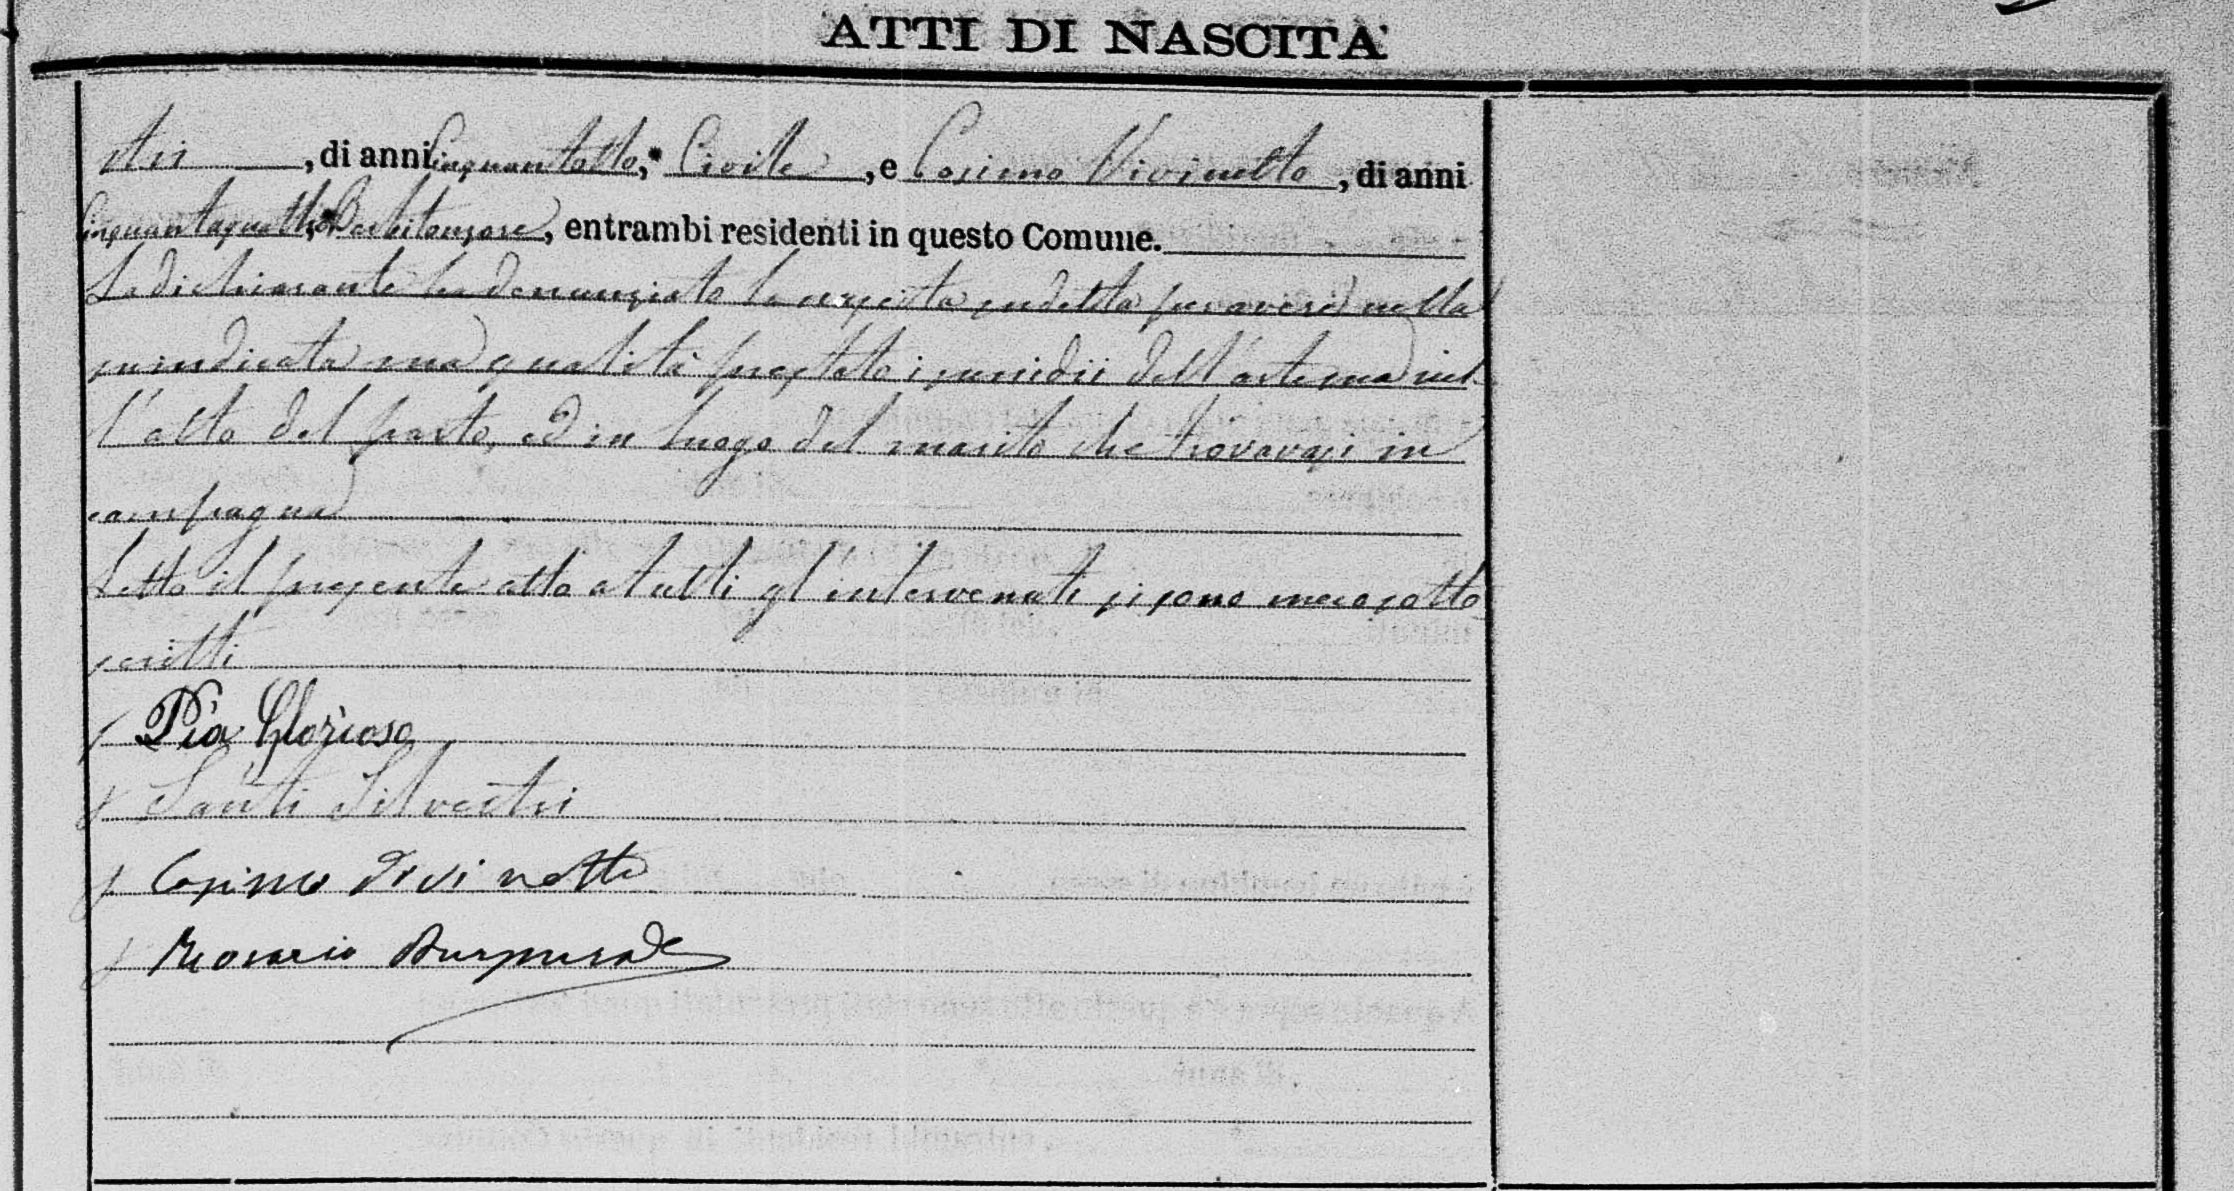 ATTI DI NASCITA'
stri, di anni Cinquantotto, Civile, e Cosimo Vivinetto, di anni
Cinquantaquattro, Barbitonsore, entrambi residenti in questo Comune.
La dichiarante ha denunziato la nascita sudetta per avere nella
susindicata sua qualità prestato i sussidii dell'arte sua nel-
l'atto del parto, ed in luogo del marito che trovavasi in
campagna
Letto il presente atto a tutti gl'intervenuti si sono meco sotto
scritti
Pia Glorioso
Santi Silvestri
Cosimo Vivinetto
Rosario